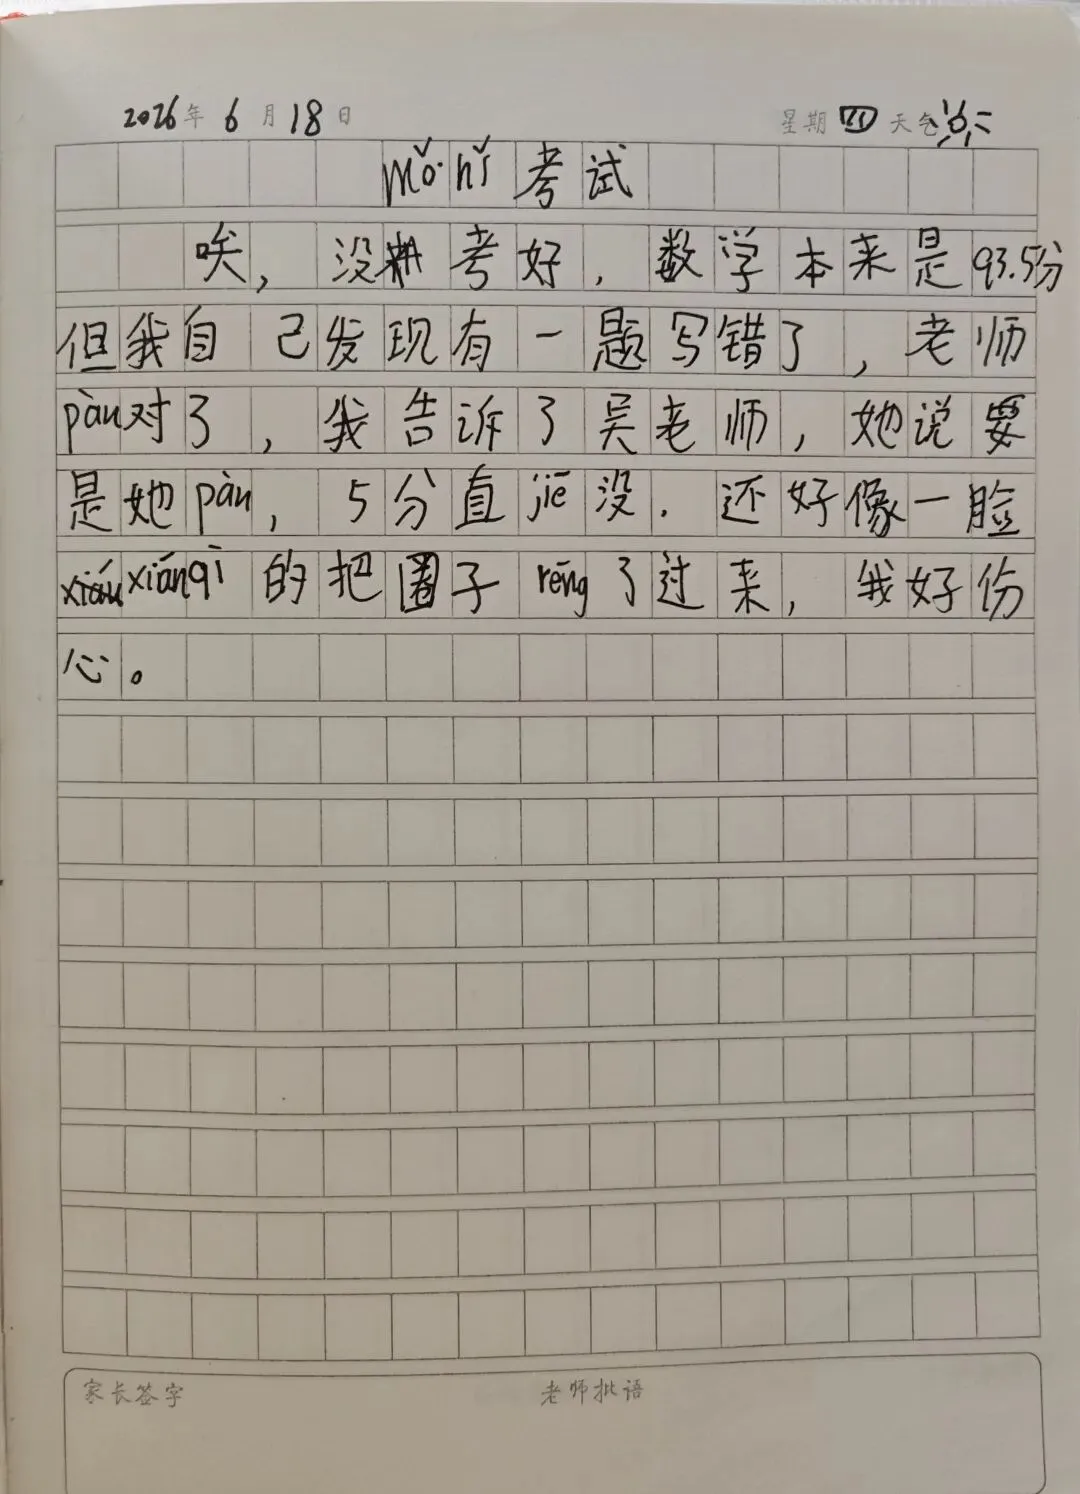 2026年6月18日 星期四 天气
mǒ·nǐ考试
唉，没考好，数学本来是93.5分
但我自己发现有一题写错了，老师
pàn对了，我告诉了吴老师，她说要
是她pàn，5分直jiē没．还好像一脸
xiánqì的把圈子rēng了过来，我好份
心。
家长签字 老师批语